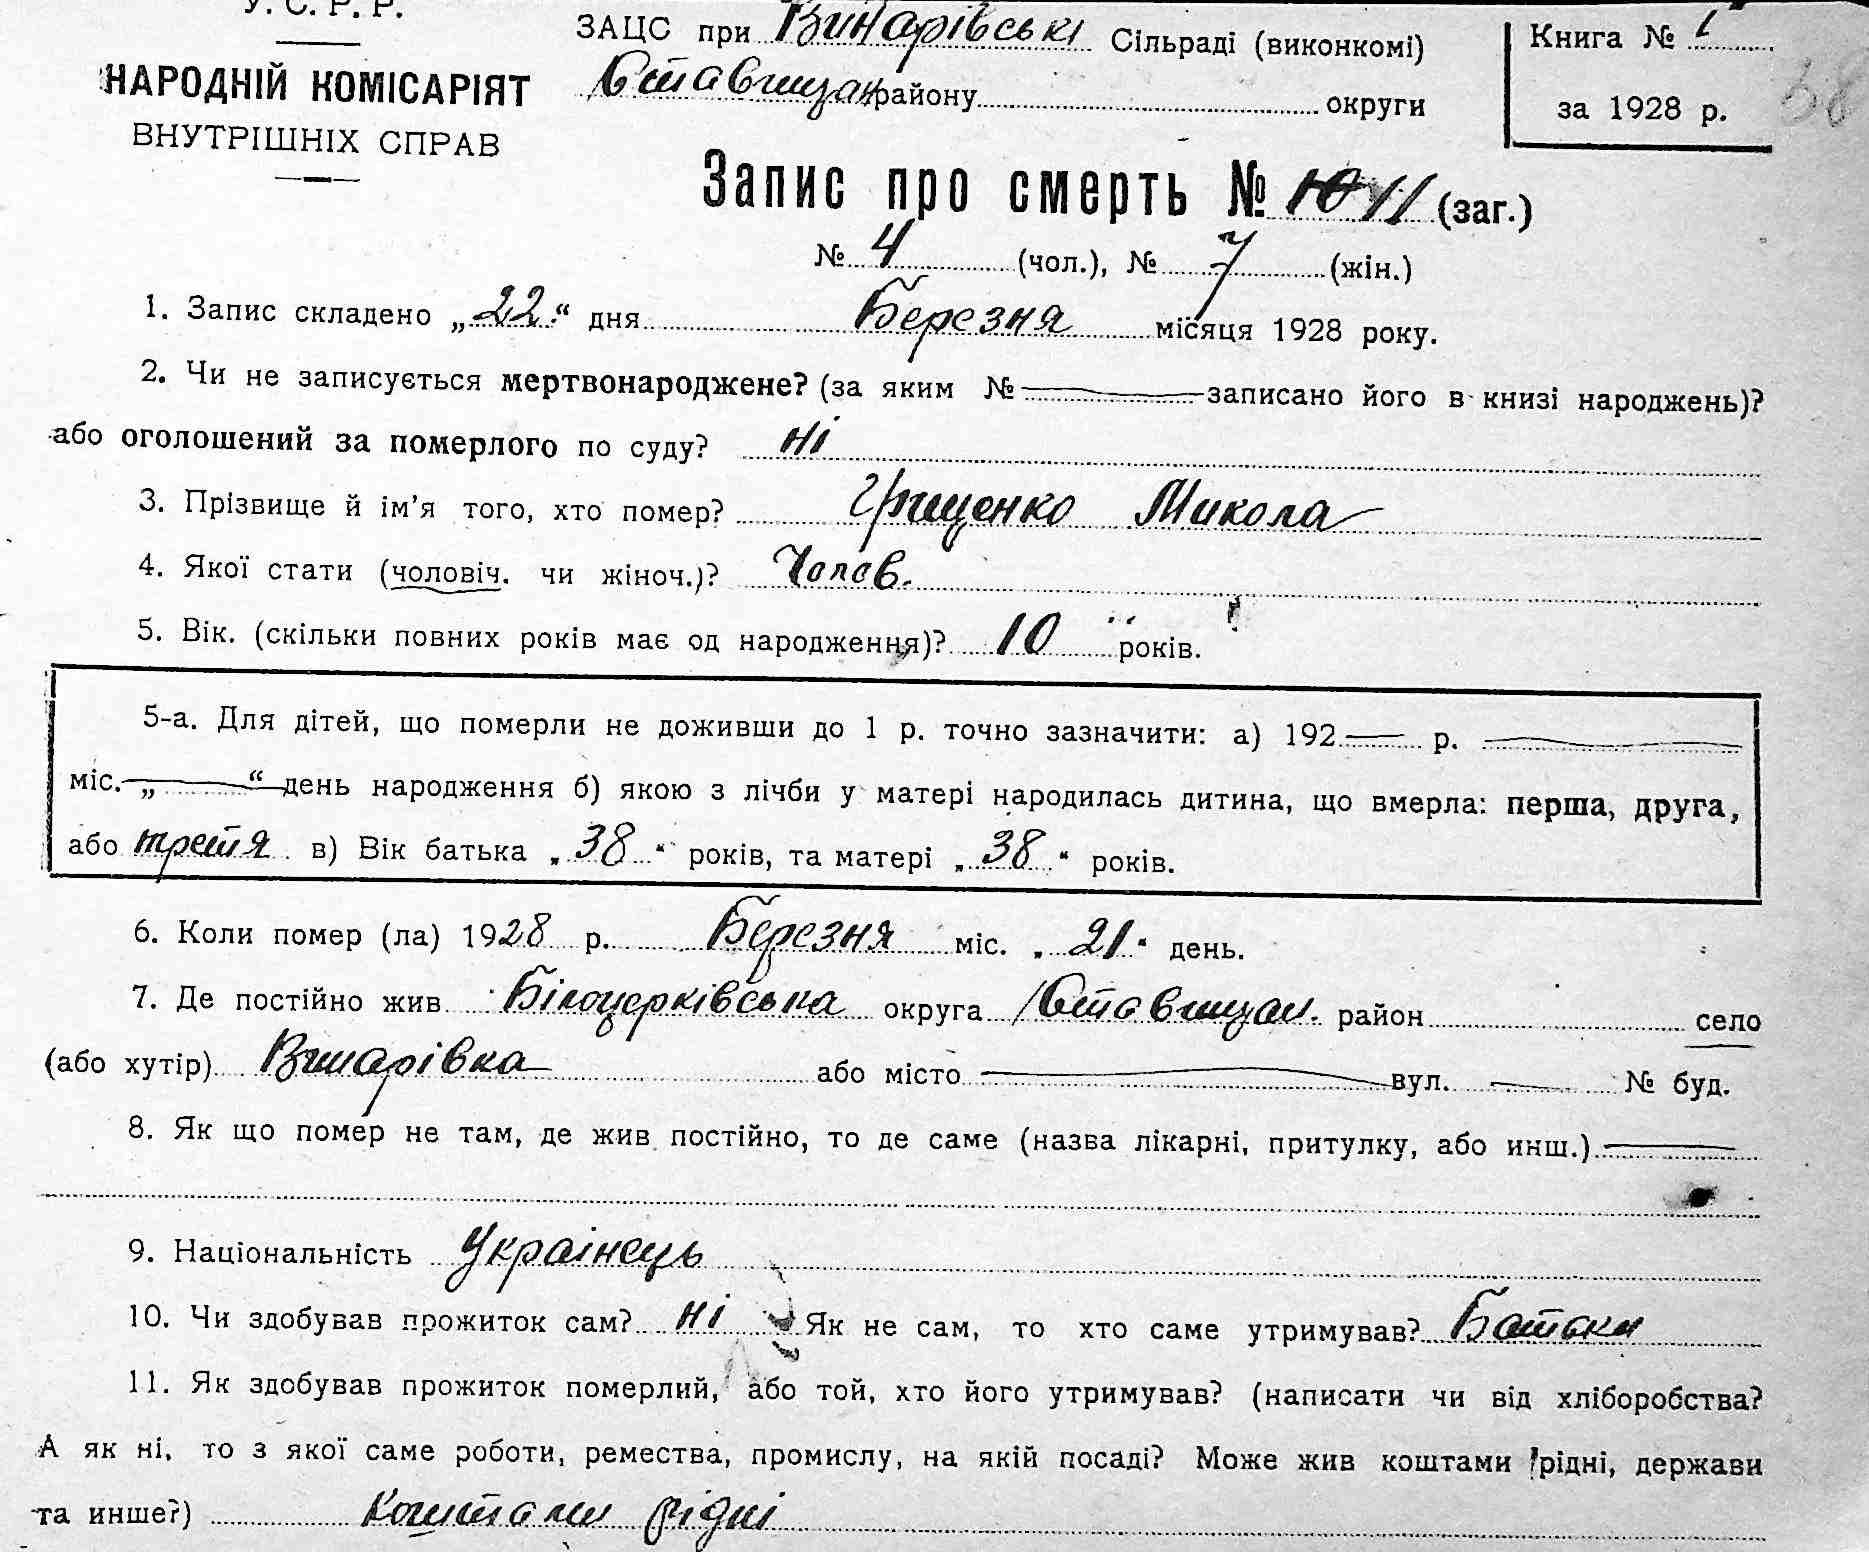 У. С. Р. Р.
НАРОДНІЙ КОМІСАРІЯТ
ВНУТРІШНІХ СПРАВ
ЗАЦС при Винарівські Сільраді (виконкомі)
Ставищан району округи
Книга № 1
за 1928 р.
58
Запис про смерть № 10 11 (заг.)
№ 4 (чол.), № 7 (жін.)
1. Запис складено „22“ дня Березня місяця 1928 року.
2. Чи не записується мертвонароджене? (за яким № записано його в книзі народжень)?
або оголошений за померлого по суду? ні
3. Прізвище й ім'я того, хто помер? Грищенко Микола
4. Якої стати (чоловіч. чи жіноч.)? Чолов.
5. Вік. (скільки повних років має од народження)? 10 років.
5-а. Для дітей, що померли не доживши до 1 р. точно зазначити: а) 192 р.
міс. „ “ день народження б) якою з лічби у матері народилась дитина, що вмерла: перша, друга,
або третя в) Вік батька „38“ років, та матері „38“ років.
6. Коли помер (ла) 1928 р. Березня міс. „21“ день.
7. Де постійно жив Білоцерківська округа Ставищан. район село
(або хутір) Винарівка або місто вул. № буд.
8. Як що помер не там, де жив постійно, то де саме (назва лікарні, притулку, або инш.)
9. Національність Українець
10. Чи здобував прожиток сам? ні Як не сам, то хто саме утримував? Батьки
11. Як здобував прожиток померлий, або той, хто його утримував? (написати чи від хліборобства?
А як ні, то з якої саме роботи, ремества, промислу, на якій посаді? Може жив коштами рідні, держави
та инше?) Коштами рідні